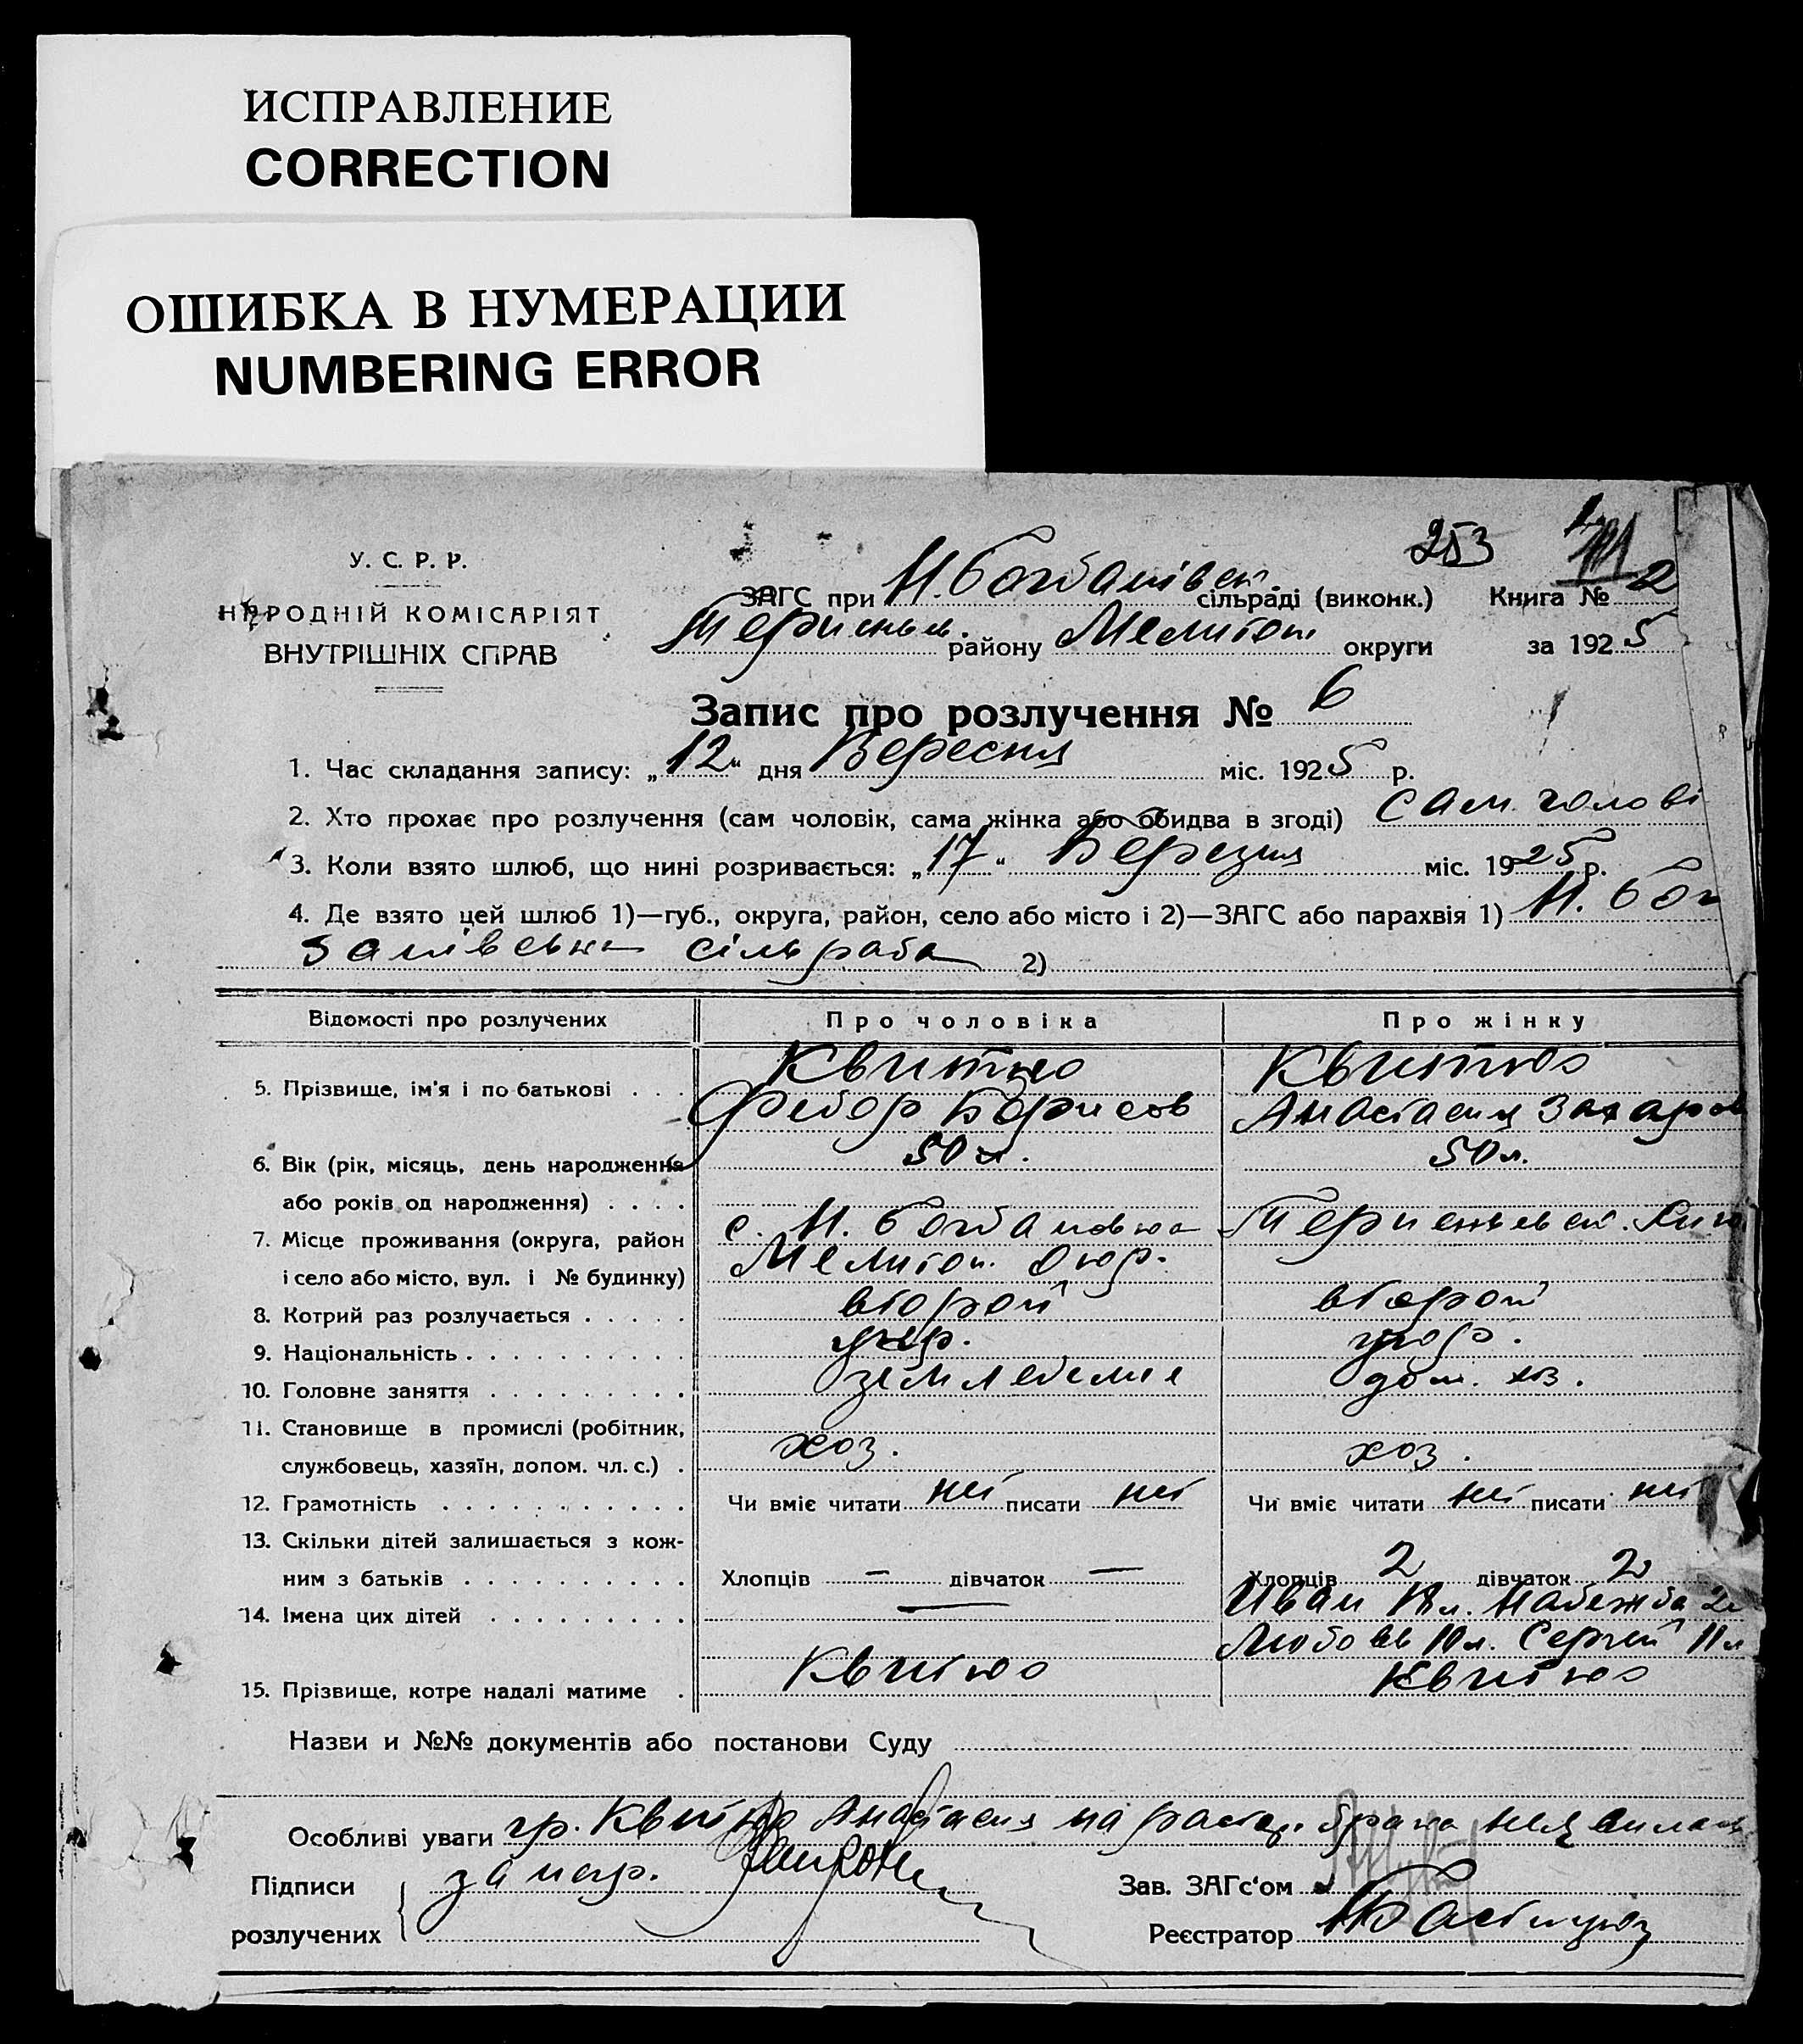 ИСПРАВЛЕНИЕ
CORRECTION
ОШИБКА В НУМЕРАЦИИ
NUMBERING ERROR
253
У. С. Р. Р.
НАРОДНІЙ КОМІСАРІЯТ
ВНУТРІШНІХ СПРАВ
ЗАГС при Н. Богданівск. сільраді (виконк.) Книга № 2
району Мелитоп округи за 1925
Запис про розлучення № 6
1. Час складання запису: „12“ дня Вересня міс. 1925 р.
2. Хто прохає про розлучення (сам чоловік, сама жінка або обидва в згоді) сам чолові
3. Коли взято шлюб, що нині розривається: „17“ Березня міс. 1925 р.
4. Де взято цей шлюб 1)—губ., округа, район, село або місто і 2)—ЗАГС або парахвія 1) Н. Бог
данівська сільрада 2)
Відомості про розлучених Про чоловіка Про жінку
5. Прізвище, ім'я і по батькові . . . Квитко Квитко
Федор Борисов Анастасия Захаров
6. Вік (рік, місяць, день народження 50 л. 50 л.
або років од народження) . . . .
7. Місце проживання (округа, район с. Н. Богдановка
і село або місто, вул. і № будинку) Мелитоп. окр.
8. Котрий раз розлучається . . . . . второй второй
9. Національність . . . . . . . . . . укр. укр.
10. Головне заняття . . . . . . . . . земледелие дом. хоз.
11. Становище в промислі (робітник,
службовець, хазяїн, допом. чл. с.) . хоз. хоз.
12. Грамотність . . . . . . . . . . . Чи вміє читати ні писати ні Чи вміє читати ні писати ні
13. Скільки дітей залишається з кож-
ним з батьків . . . . . . . . . . Хлопців — дівчаток — Хлопців 2 дівчаток 2
14. Імена цих дітей . . . . . . . . . — Иван л. Надежда 2
Любовь 10 л. Сергей 11 л
15. Прізвище, котре надалі матиме . Квитко Квитко
Назви и №№ документів або постанови Суду
Особливі уваги гр. Квитко Анастасия на растор. брака
Підписи Зав. ЗАГс‘ом
розлучених Реєстратор